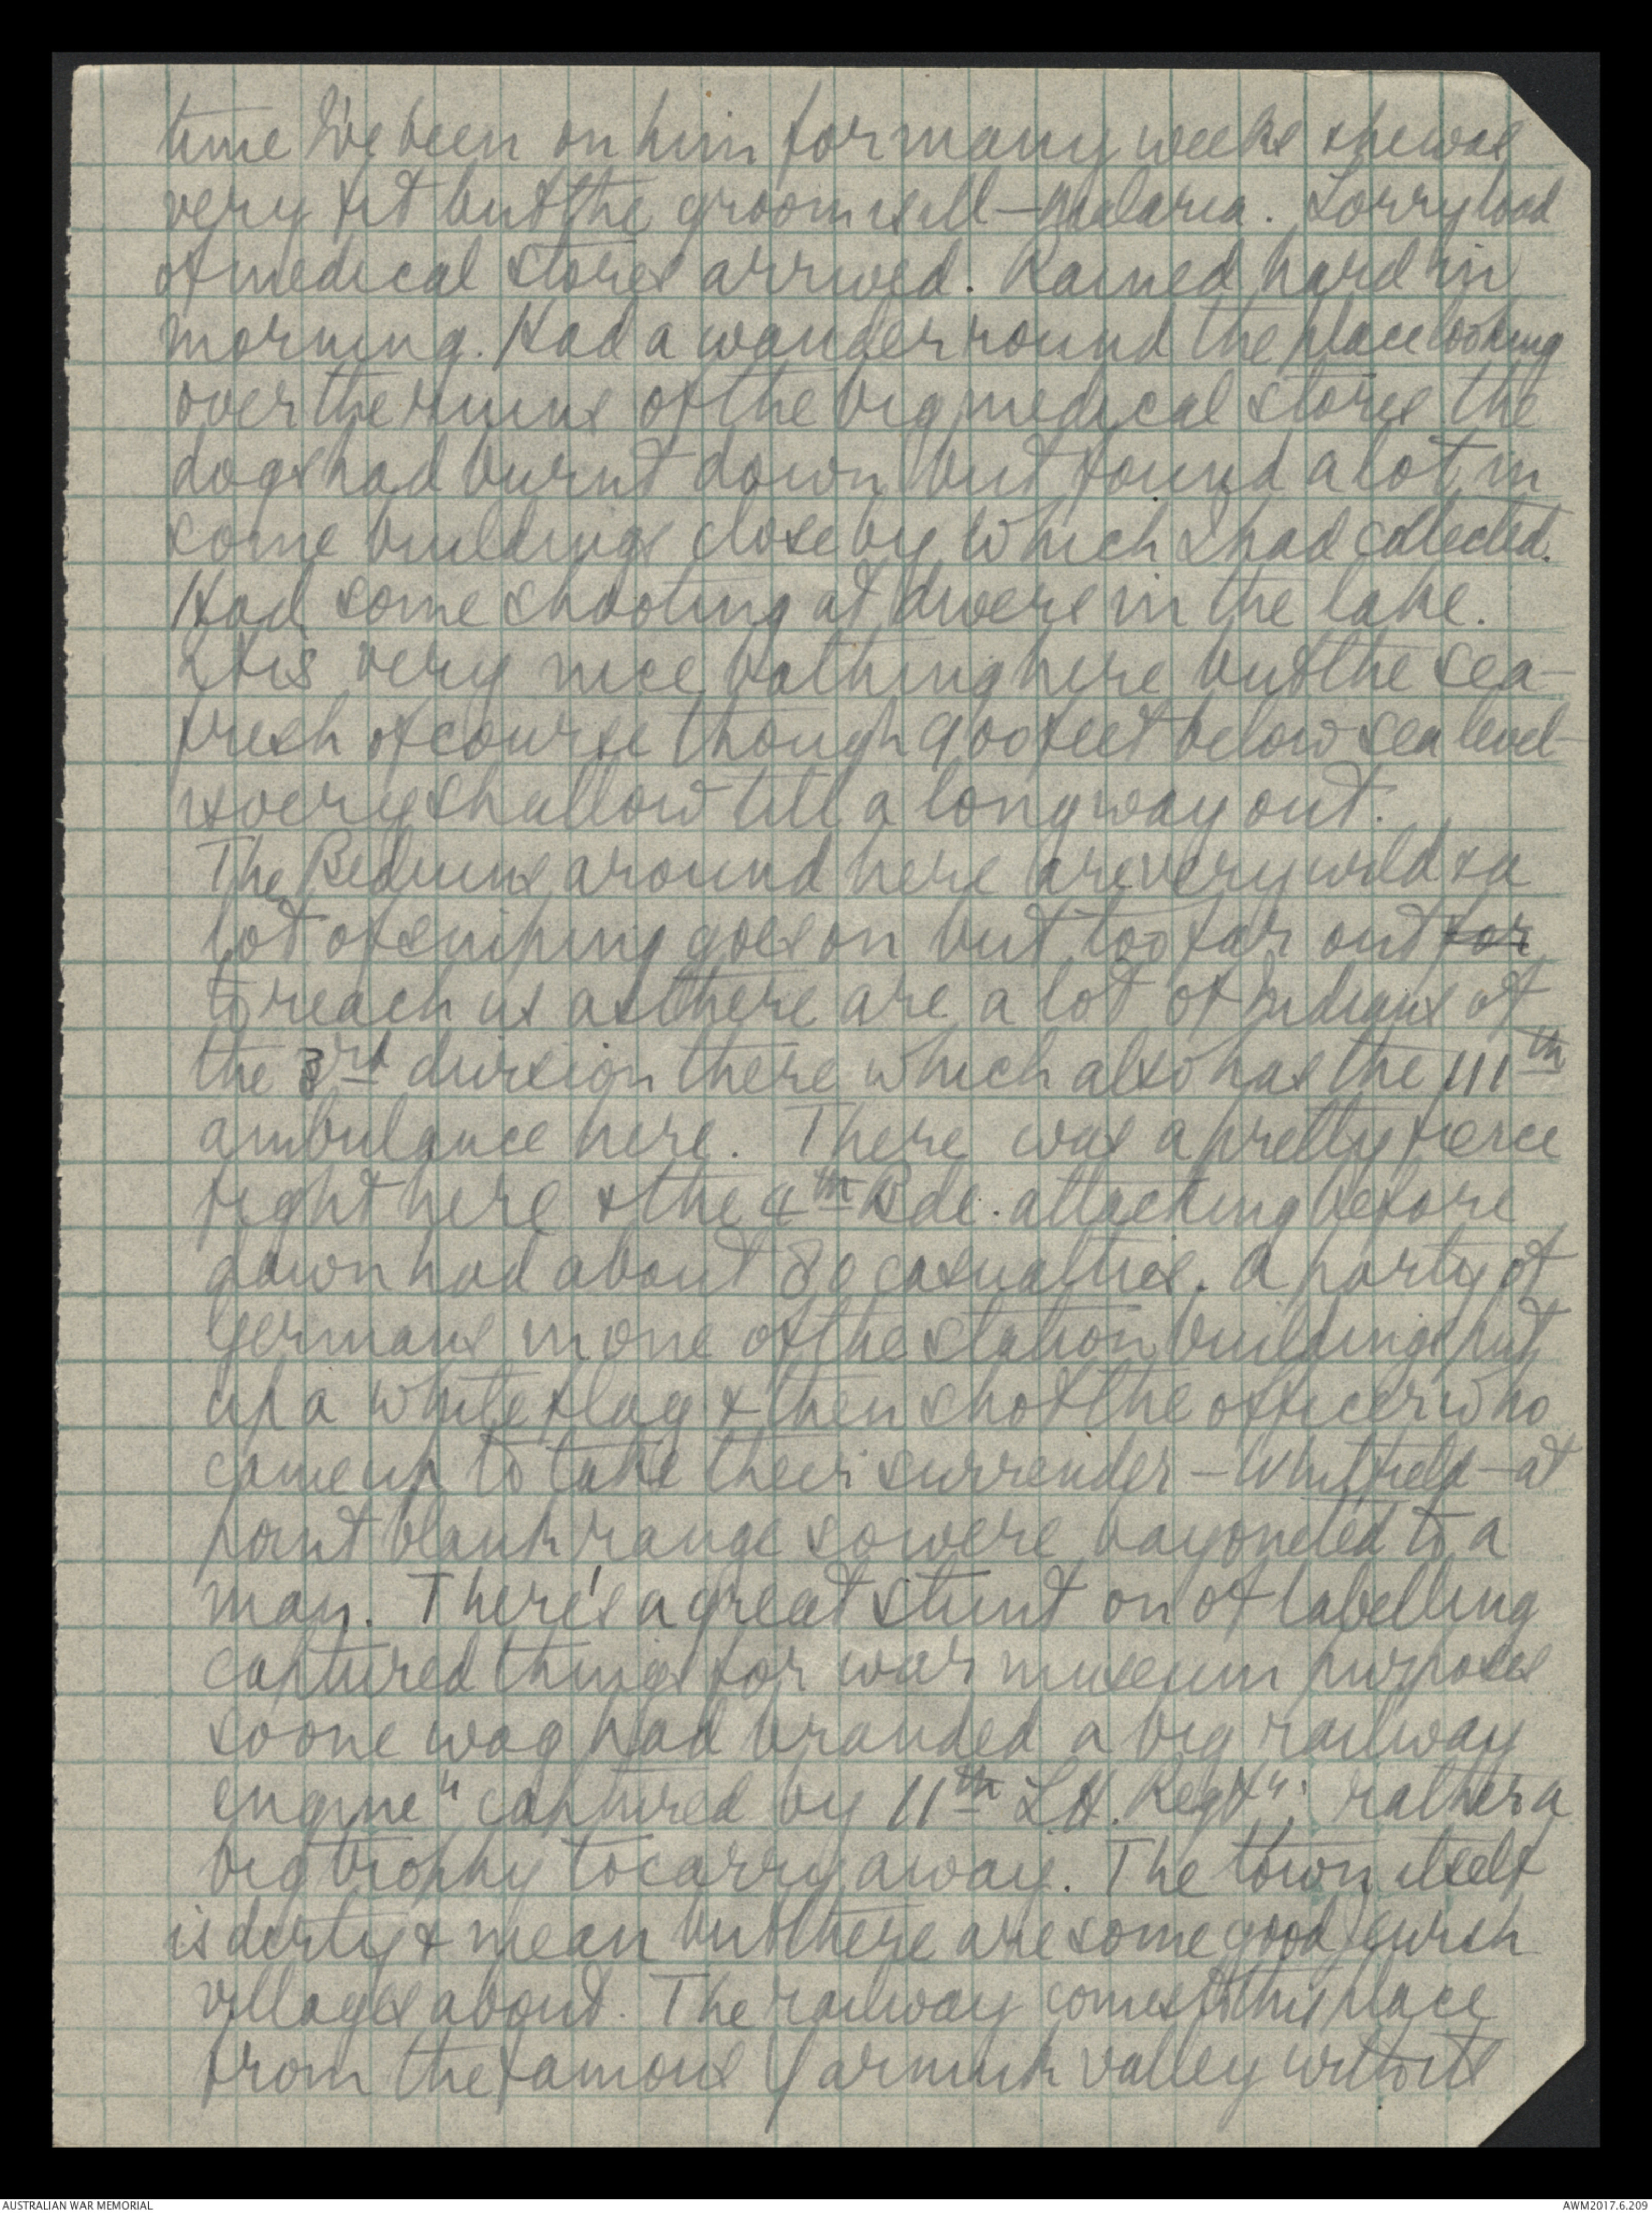 time I've been on him for many weeks & he was
very fit but the groom is ill - Malaria. Lorry load
of medical stores arrived. Rained hard in
morning. Had a wander round the place looking
over the ruins of the big medical stores the
dogs had burnt down but found a lot in
some buildings close by which I had collected.
Had some shooting at divers in the lake.
It is very nice bathing here but the sea -
fresh of course though 900 feet below sea level -
is very shallow till a long way out.
The Beduins around here are very wild & a
lot of sniping goes on but too far out for
to reach us as there are a lot of Indians of
the 3rd division there which also has the 111th
ambulance here. There was a pretty fierce
fight here & the 4th Bde. attacking before
dawn had about 80 casualties. A party of
Germans in one of the station buildings put
up a white flag & then shot the officer who
came up to take their surrender - Whitfield - at
point blank range so were bayoneted to a
man. There's a great stunt on of labelling
captured things for war museum purposes
so one wag had branded a big railway
engine "captured by 11th L.H. Regt"; rather a
big trophy to carry away. The town itself
is dirty & mean but there are some good Jewish
villages about. The railway comes to this place
from the famous Yarmuk valley with its
AUSTRALIAN WAR MEMORIAL
AWM2017.6.209